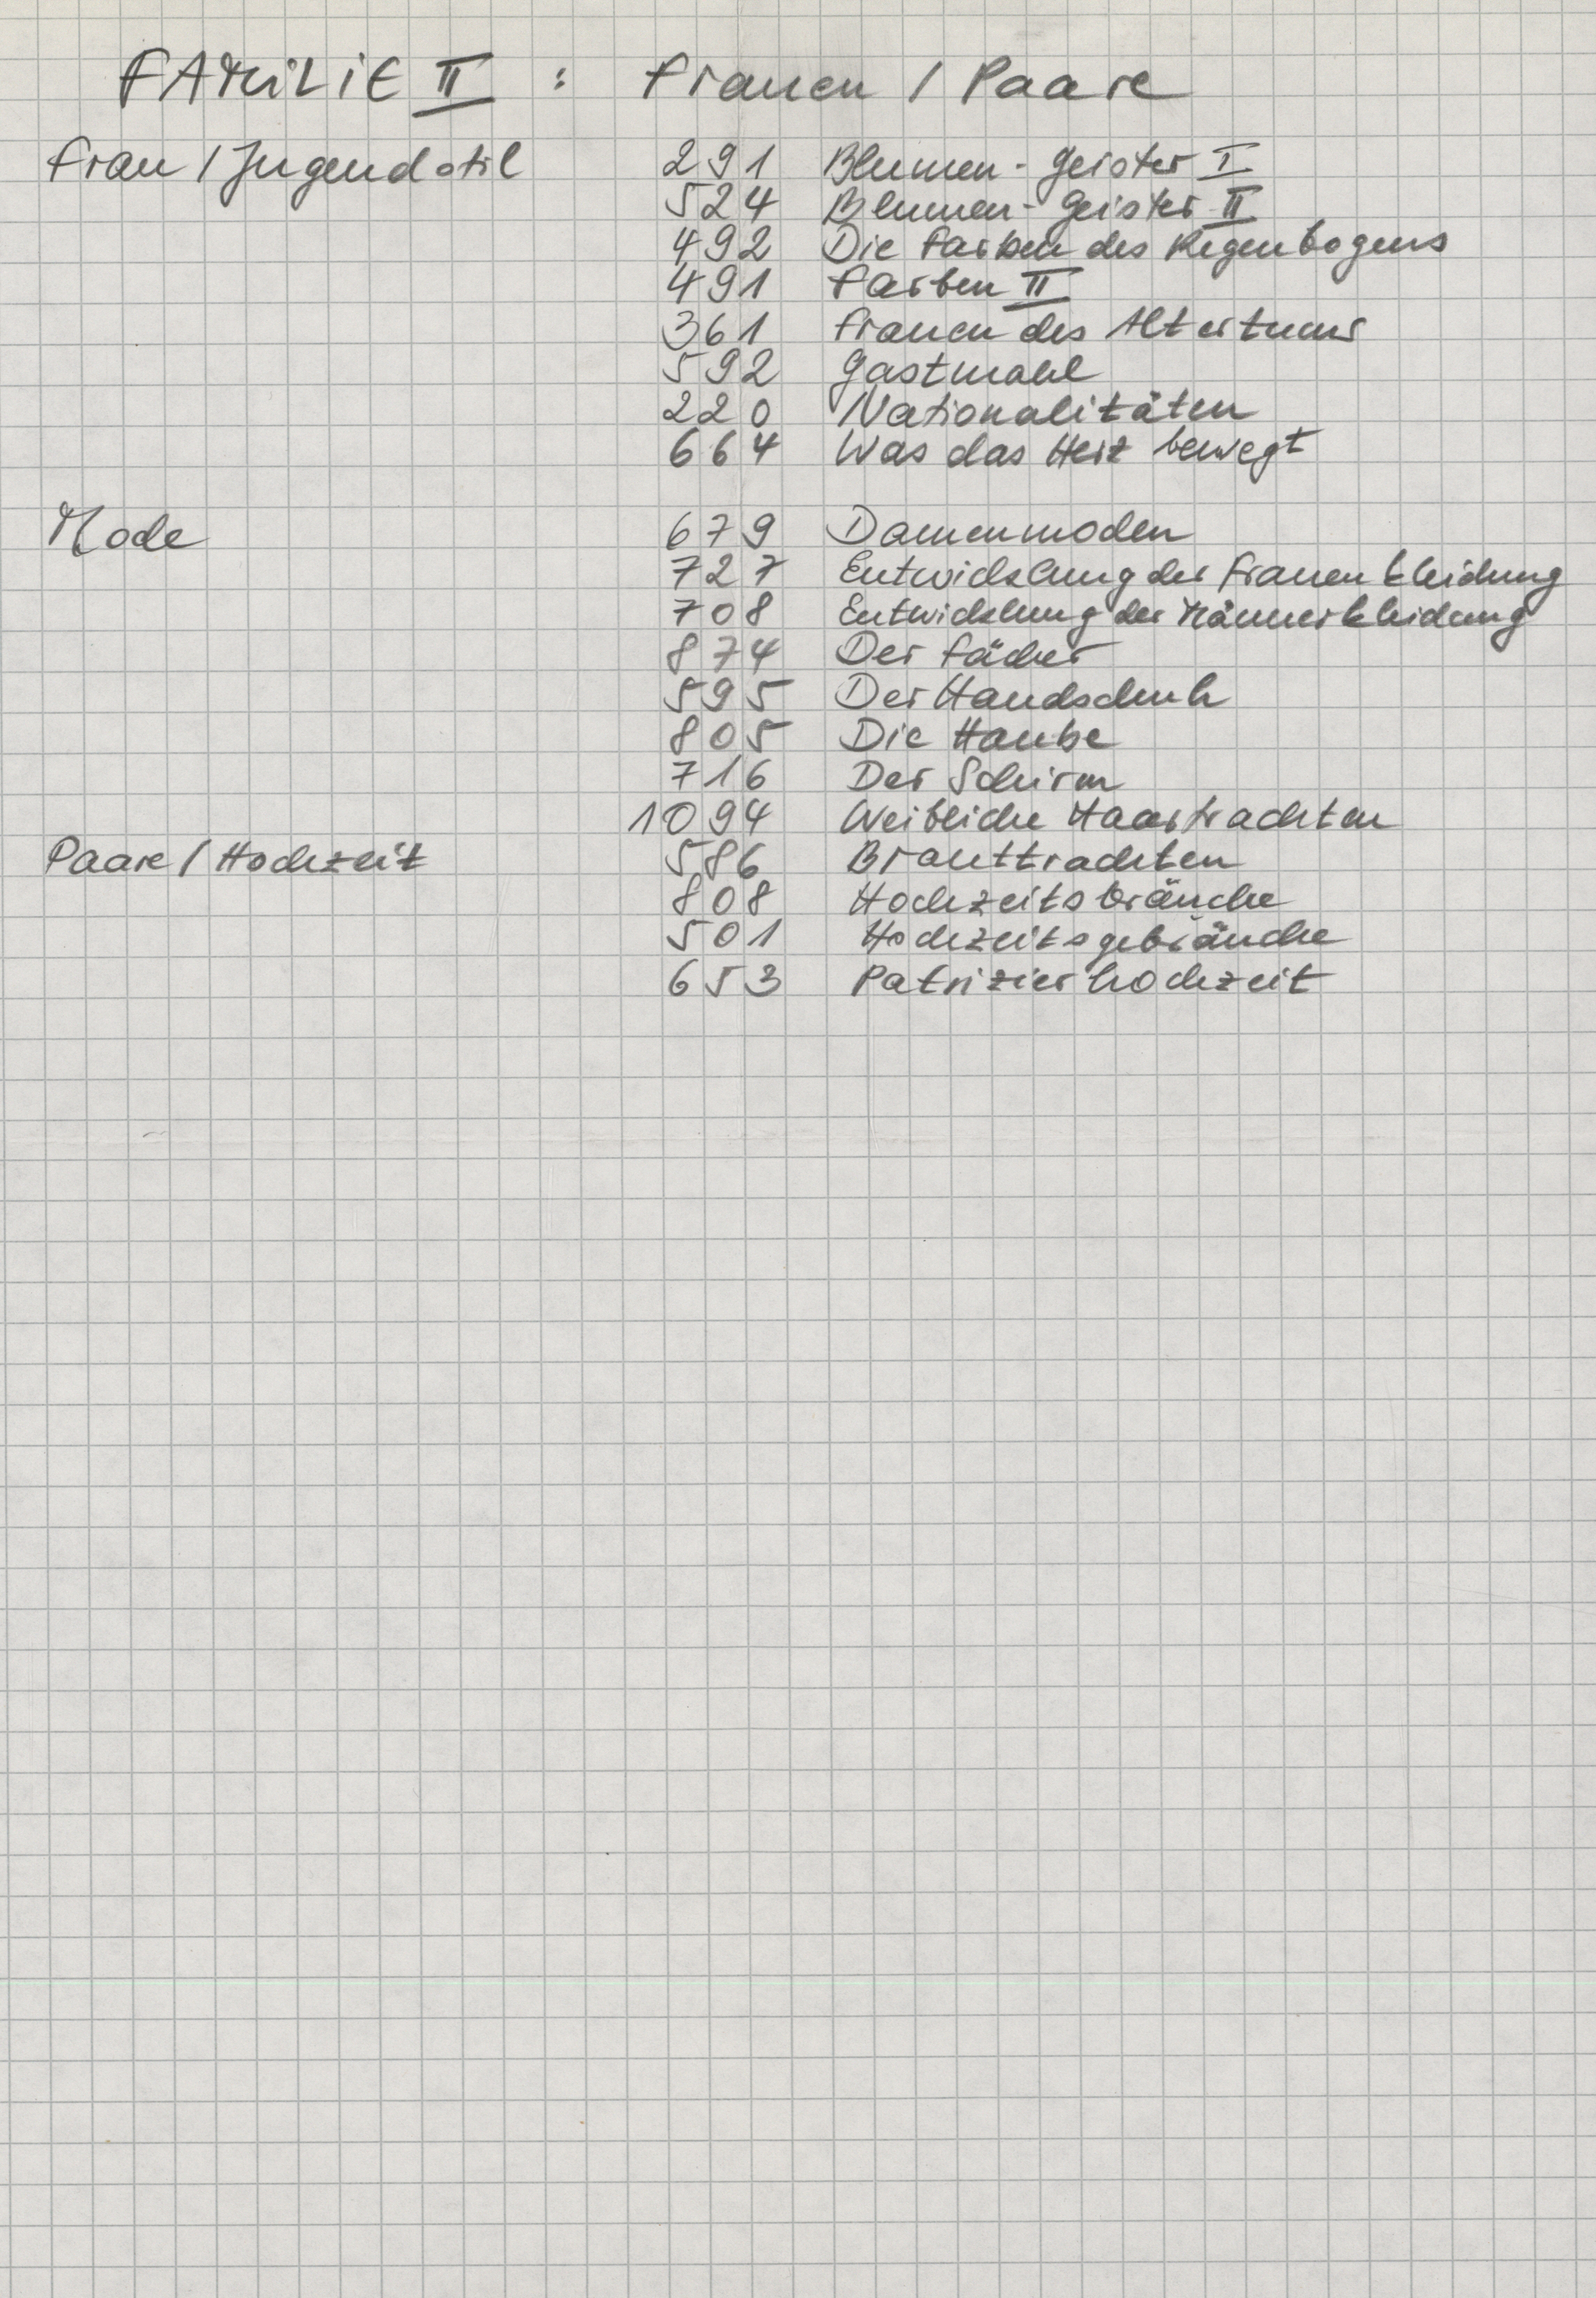 FAMILIE II : Frauen / Paare
Frau / Jugendstil 291 Blumen-Geister I
524 Blumen-Geister II
492 Die Farben des Regenbogens
491 Farben II
361 Frauen des Altertums
592 Gastmahl
220 Nationalitäten
664 Was das Herz bewegt
Mode 679 Damenmoden
727 Entwicklung der Frauenkleidung
708 Entwicklung der Männerkleidung
874 Der Fächer
595 Der Handschuh
805 Die Haube
716 Der Schirm
1094 Weibliche Haartrachten
Paare / Hochzeit 586 Brauttrachten
808 Hochzeitsbräuche
501 Hochzeitsgebräuche
653 Patrizierhochzeit